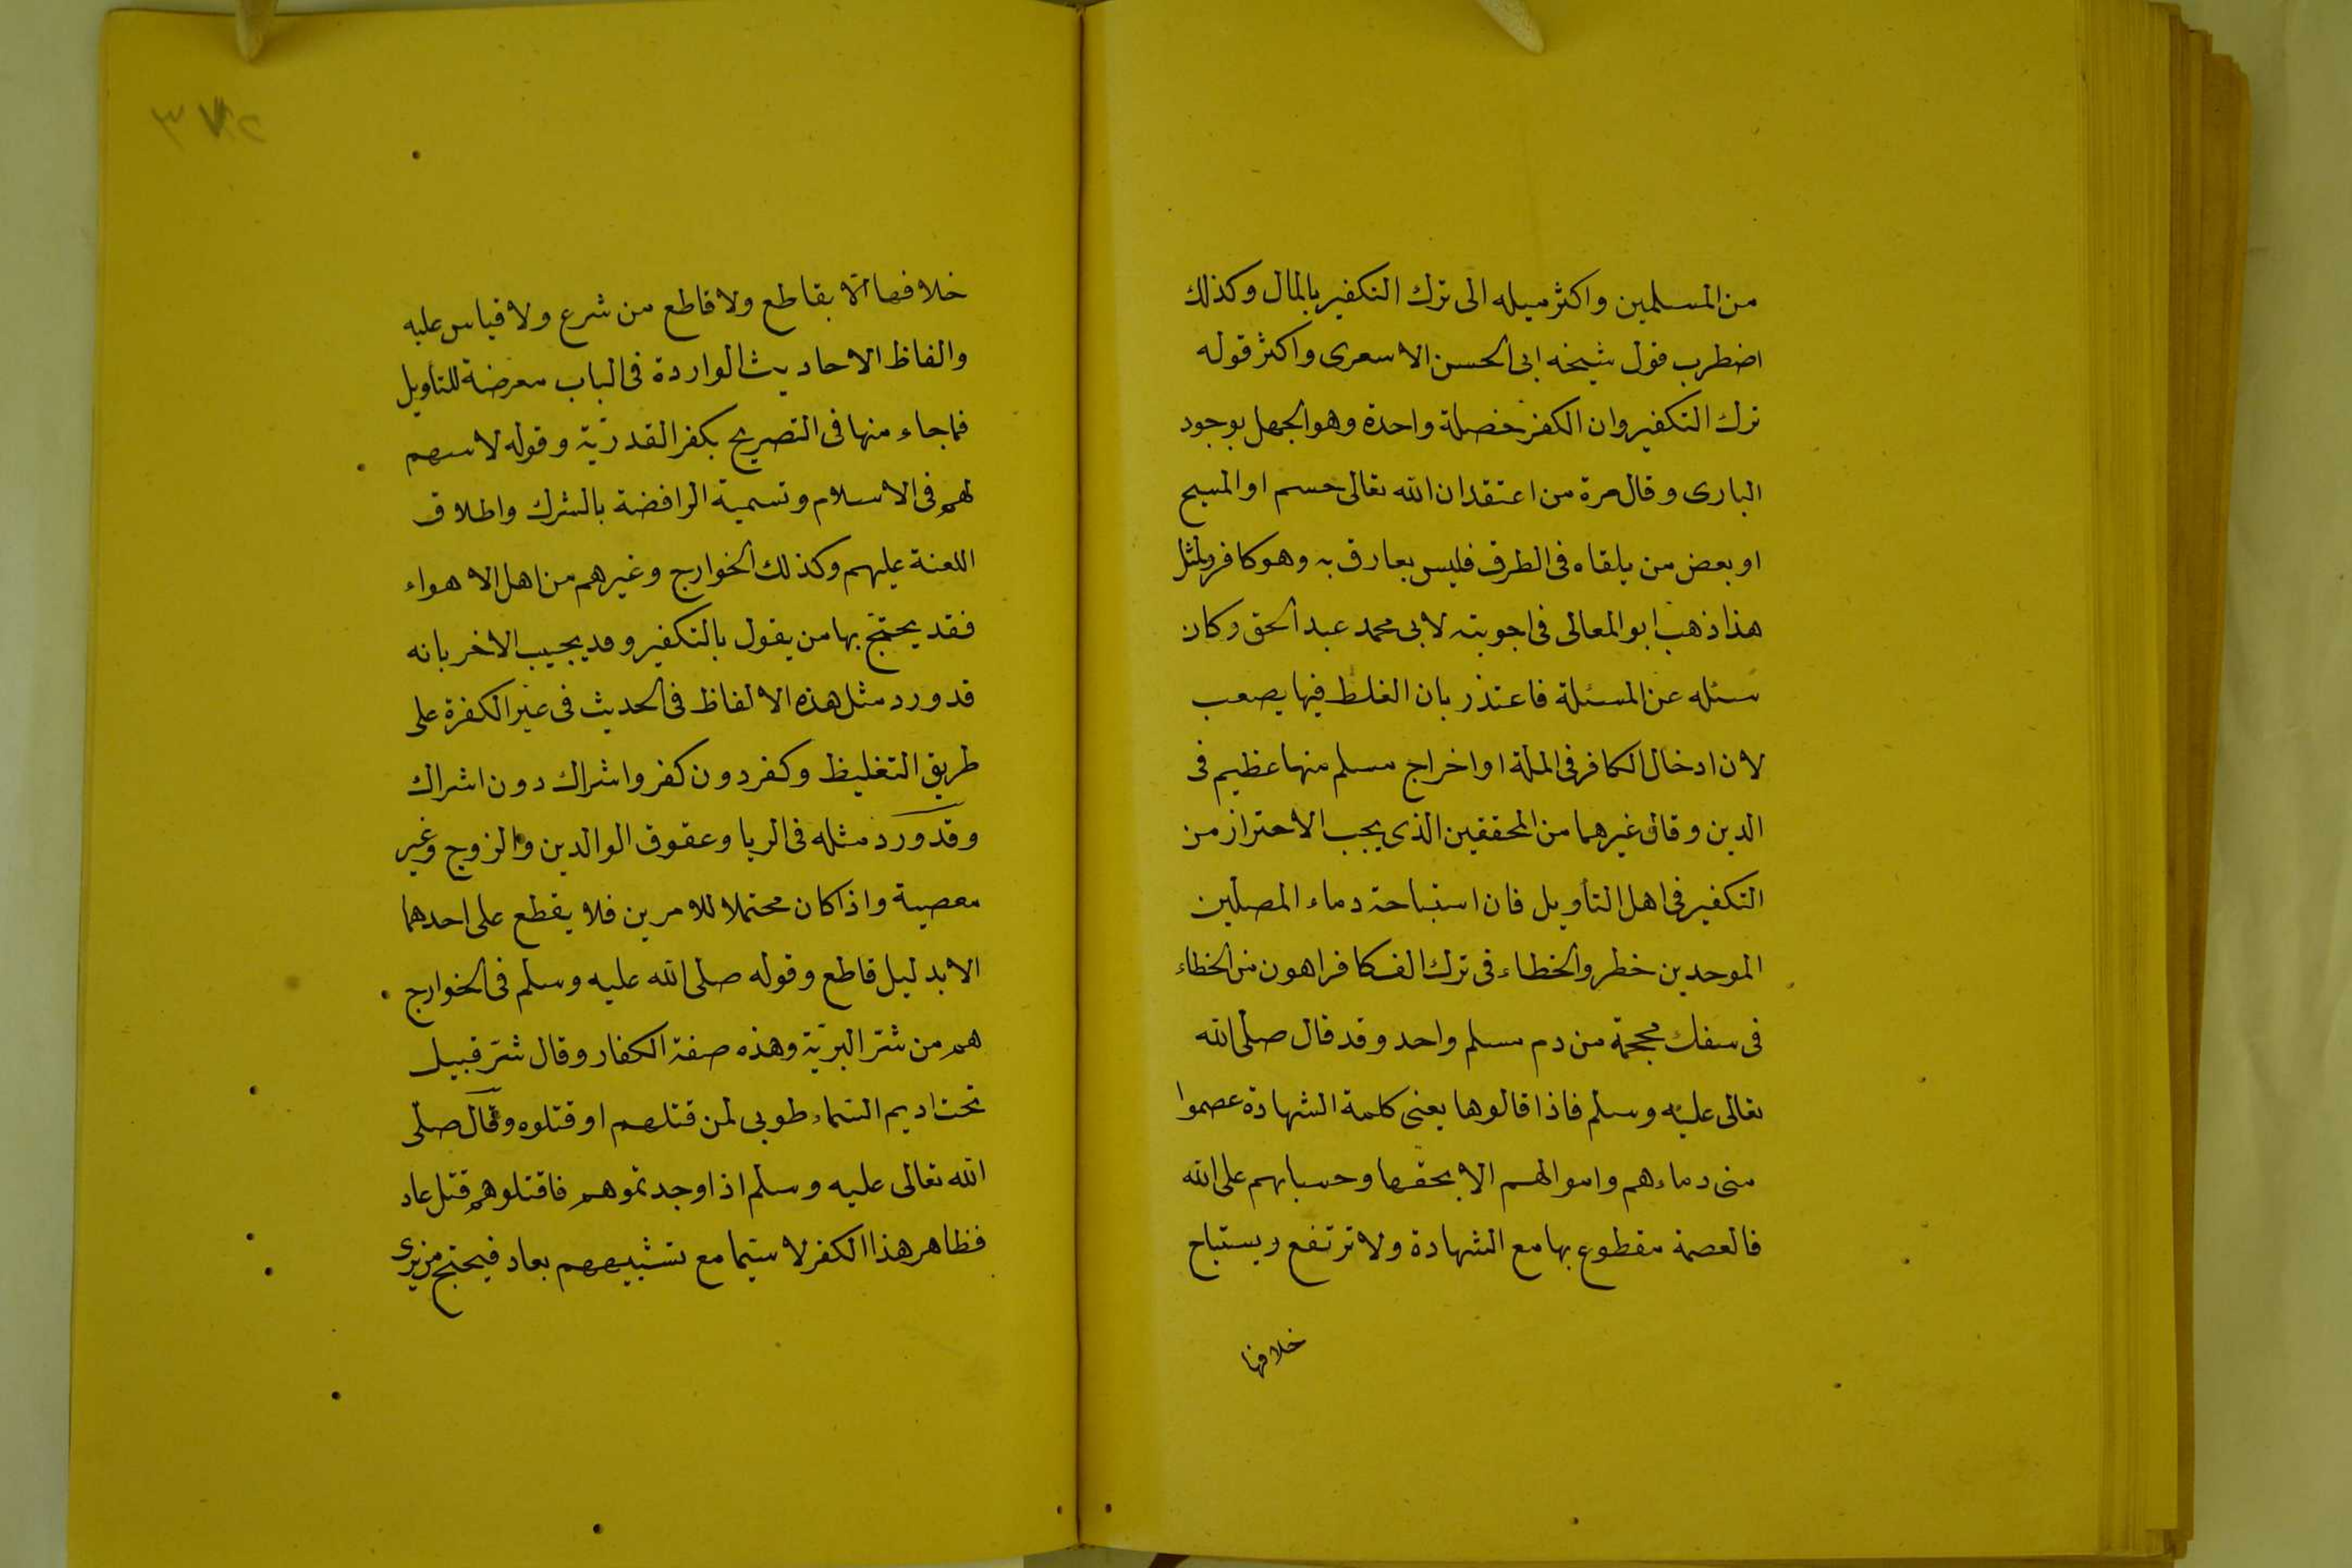 من المسلمين واكثر ميله الى ترك التكفير بالمال وكذلك
اضطرب قول شيخه ابى الحسن الاسعرى واكثر قوله
ترك التكفير وان الكفر خصلة واحدة وهو الجهل بوجود
البارى وقال مرة من اعتقد ان الله تعالى جسم او المسيح
او بعض من يلقاه فى الطرق فليس بعارف به وهو كافر ولمثل
هذا ذهب ابو المعالى فى اجوبته لابى محمد عبد الحق وكان
سئله عن المسئلة فاعتذر بان الغلط فيها يصعب
لان ادخال الكافر فى الملة او اخراج مسلم منها عظيم فى
الدين وقال غيرهما من المحققين الذى يجب الاحتراز من
التكفير فى اهل التأويل فان استباحة دماء المصلّين
الموحدين خطر والخطاء فى ترك الف كافر اهون من الخطاء
فى سفك محجمة من دم مسلم واحد وقد قال صلّى الله
تعالى عليه وسلم فاذا قالوها يعنى كلمة الشهادة عصموا
منى دماءهم واموالهم الا بحقها وحسابهم على الله
فالعصمة مقطوع بها مع الشهادة ولا ترتفع ويستباح
خلافها
خلافها الا بقاطع ولا قاطع من شرع ولا قياس عليه
والفاظ الاحاديث الواردة فى الباب معرضة للتأويل
فما جاء منها فى التصريح بكفر القدريّة وقوله لا سهم
لهم فى الاسلام وتسمية الرافضة بالشرك واطلاق
اللعنة عليهم وكذلك الخوارج وغيرهم من اهل الاهواء
فقد يحتج بها من يقول بالتكفير وقد يجيب الاخر بانه
قد ورد مثل هذه الالفاظ فى الحديث فى غير الكفرة على
طريق التغليظ وكفر دون كفر واشراك دون اشراك
وقد ورد مثله فى الربا وعقوق الوالدين والزوج وغير
معصية واذا كان محتملا للامرين فلا يقطع على احدهما
الا بدليل قاطع وقوله صلى الله عليه وسلم فى الخوارج
هم من شرّ البريّة وهذه صفة الكفار وقال شرّ قبيل
تحت اديم السّماء طوبى لمن قتلهم او قتلوه وقال صلّى
الله تعالى عليه وسلم اذا وجدتموهم فاقتلوهم قتل عاد
فظاهر هذا الكفر لا سيّما مع تشبيههم بعاد فيحتج من يرى